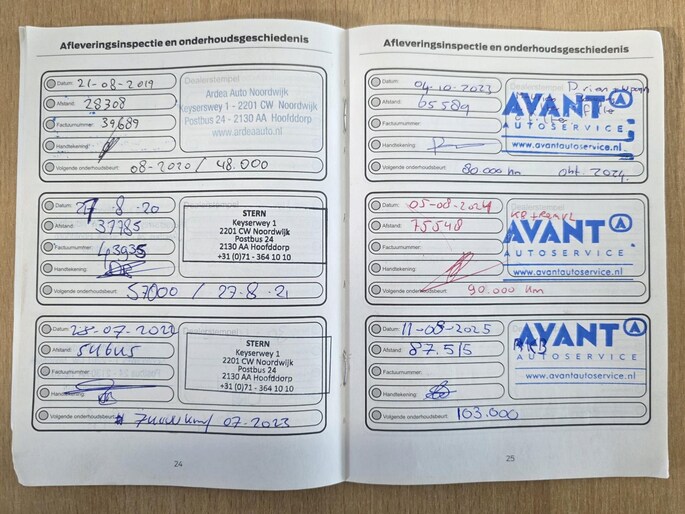 Afleveringsinspectie en onderhoudsgeschiedenis
Datum: 21-08-2019
Afstand: 28308
Factuurnummer: 39689
Handtekening:
Volgende onderhoudsbeurt: 08-2020 / 48.000
Dealerstempel
Ardea Auto Noordwijk
Keyserswey 1 - 2201 CW Noordwijk
Postbus 24 - 2130 AA Hoofddorp
www.ardeaauto.nl
Datum: 27-8-20
Afstand: 37785
Factuurnummer: 43935
Handtekening:
Volgende onderhoudsbeurt: 57000 / 27-8-21
STERN
Keyserwey 1
2201 CW Noordwijk
Postbus 24
2130 AA Hoofddorp
+31 (0)71 - 364 10 10
Datum: 28-07-2022
Afstand: 54645
Factuurnummer:
Handtekening:
Volgende onderhoudsbeurt: 07-2023
Dealerstempel
STERN
Keyserwey 1
2201 CW Noordwijk
Postbus 24
2130 AA Hoofddorp
+31 (0)71 - 364 10 10
24
Afleveringsinspectie en onderhoudsgeschiedenis
Datum: 04-10-2023
Afstand: 65589
Factuurnummer:
Handtekening:
Volgende onderhoudsbeurt: 80.000 km okt. 2024.
AVANT A
AUTOSERVICE
www.avantautoservice.nl
Datum: 05-08-2024
Afstand: 75548
Factuurnummer:
Handtekening:
Volgende onderhoudsbeurt: 90.000 km
AVANT A
AUTOSERVICE
www.avantautoservice.nl
Datum: 11-08-2025
Afstand: 87.515
Factuurnummer:
Handtekening:
Volgende onderhoudsbeurt: 103.000
AVANT A
AUTOSERVICE
www.avantautoservice.nl
25